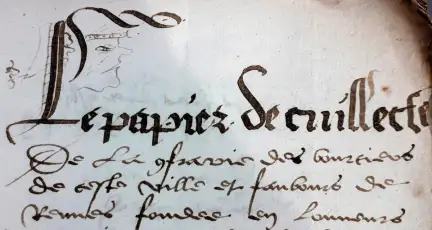 Le papier de cuillecte
De la gfravie des bourgieus
de ceste ville et faubours de
Rennes fondee en lonneurs